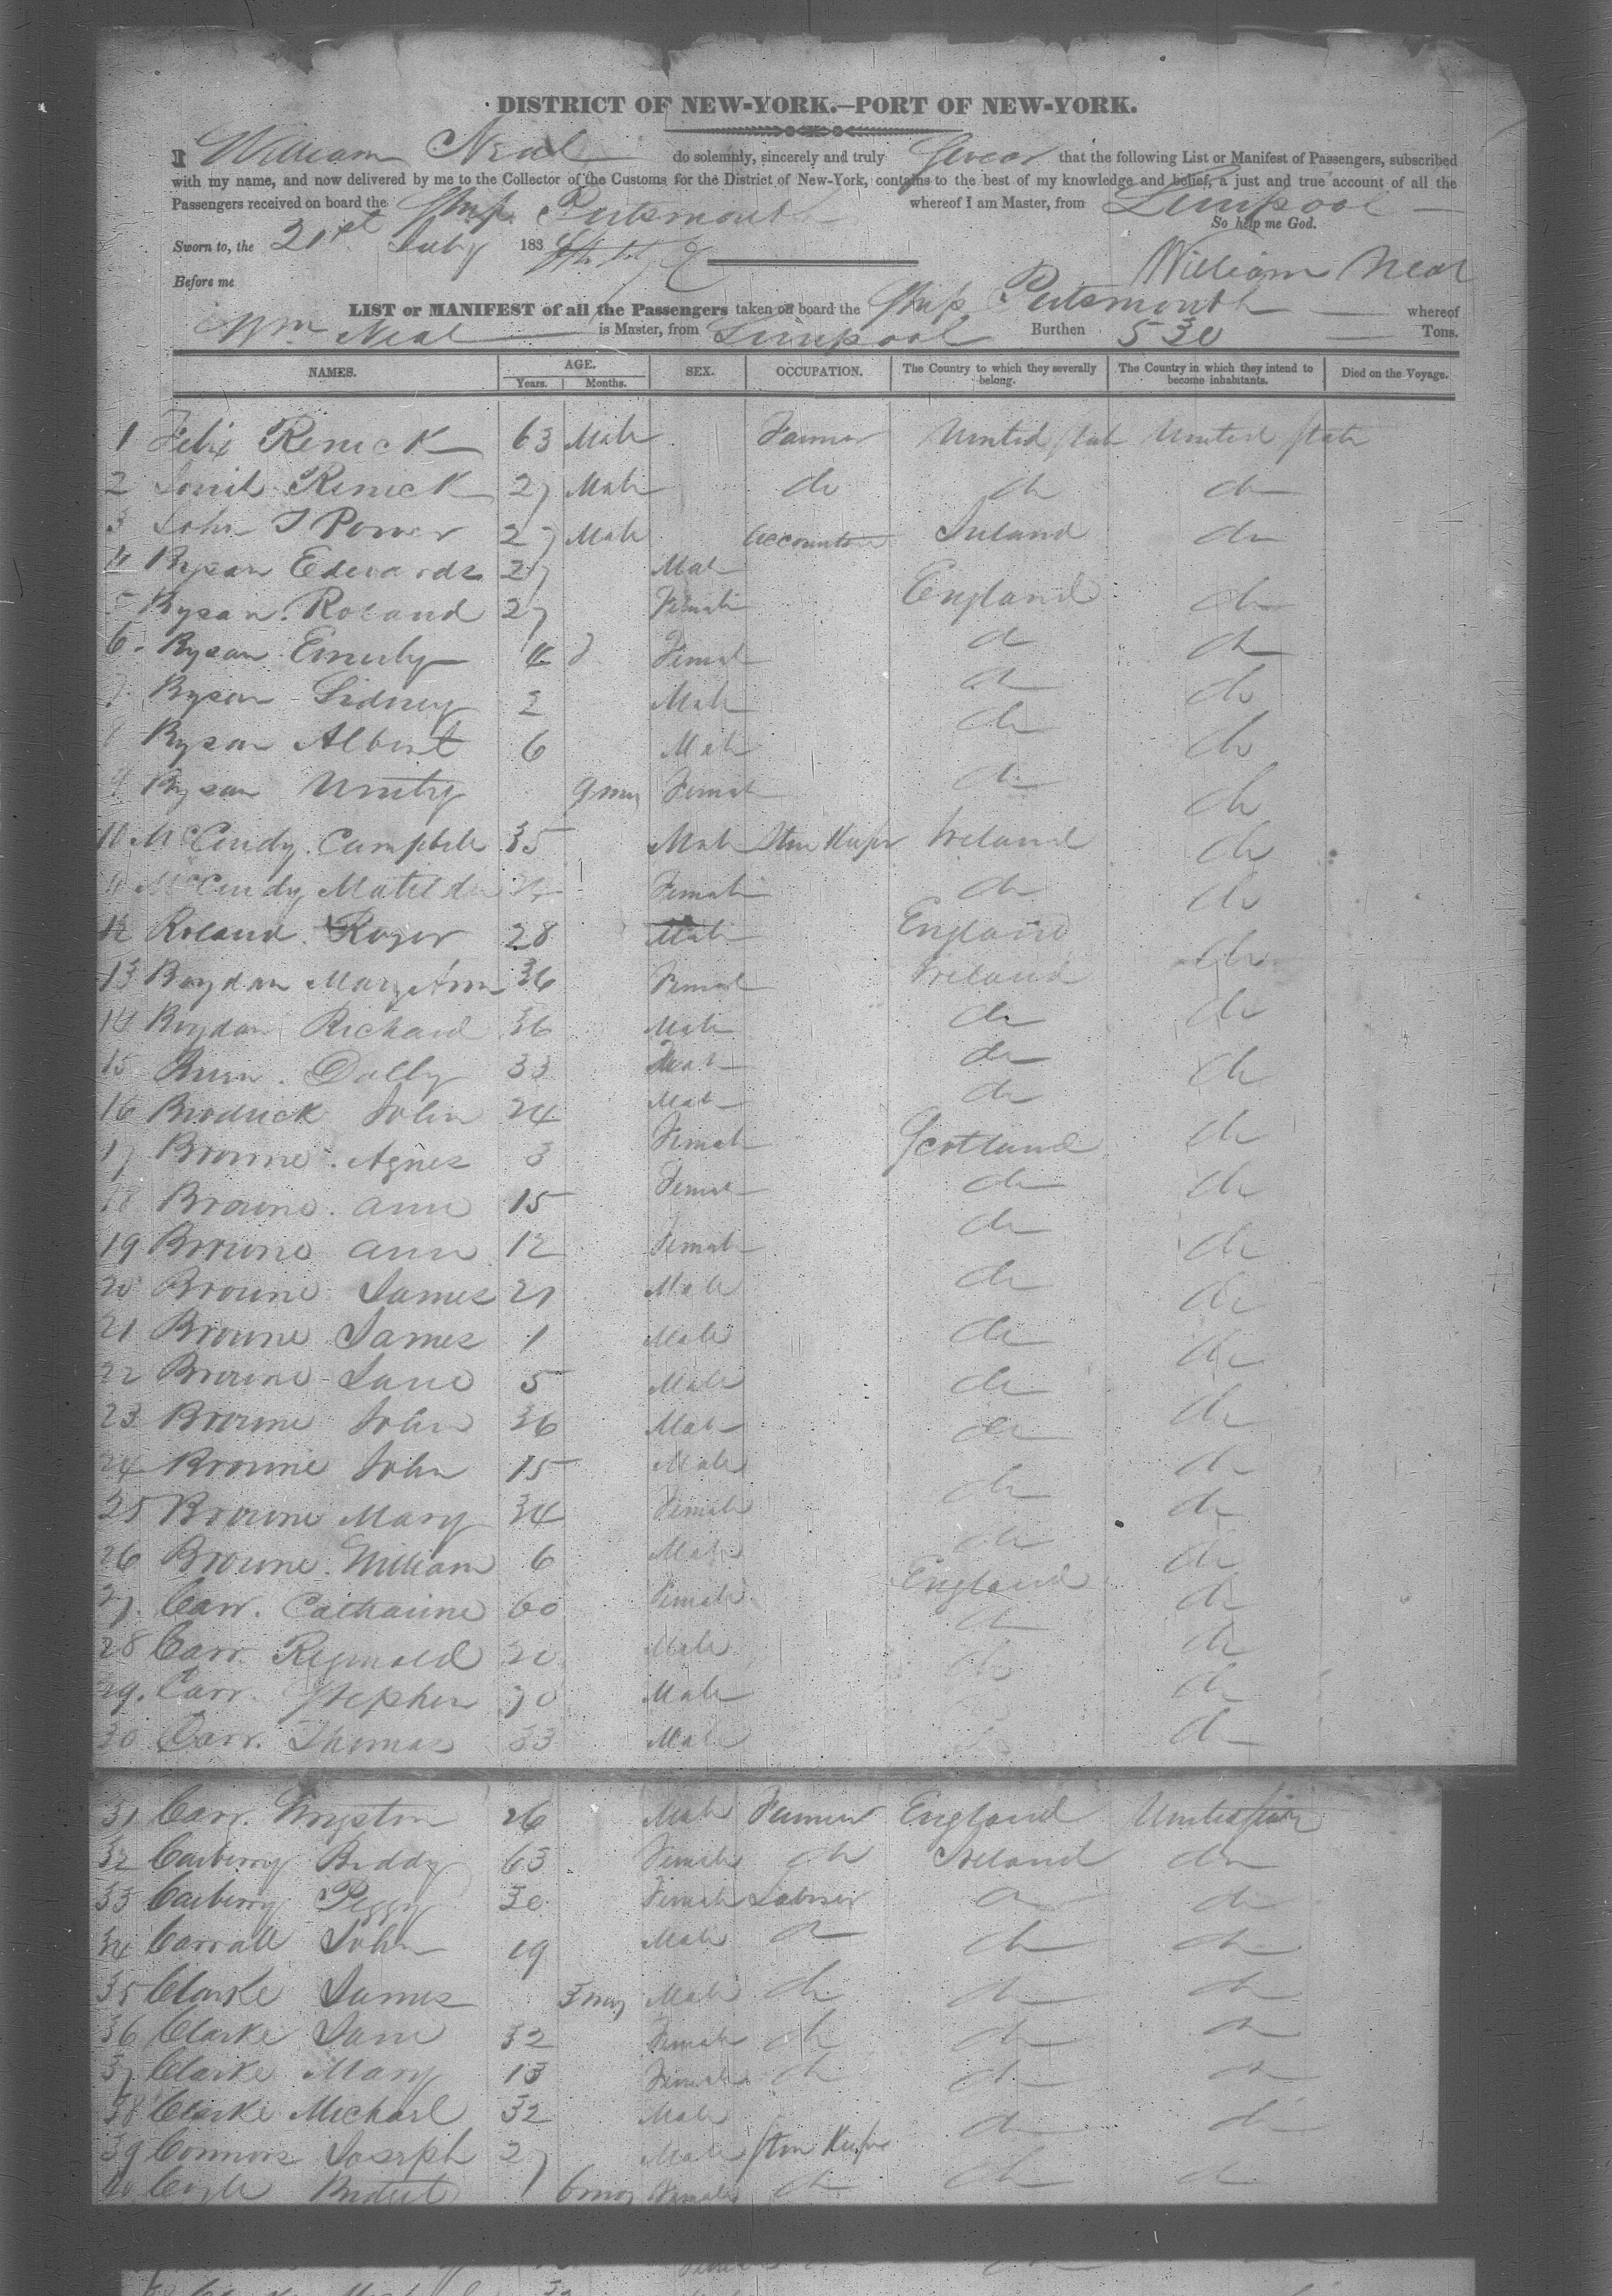 DISTRICT OF NEW-YORK.—PORT OF NEW-YORK.
I William Neal do solemnly, sincerely and truly Swear that the following List or Manifest of Passengers, subscribed
with my name, and now delivered by me to the Collector of the Customs for the District of New-York, contains to the best of my knowledge and belief, a just and true account of all the
Passengers received on board the Ship Portsmouth whereof I am Master, from Liverpool
So help me God.
Sworn to, the 21st July 183
William Neal
Before me
LIST or MANIFEST of all the Passengers taken on board the Ship Portsmouth whereof
Wm Neal is Master, from Liverpool Burthen 530 Tons.
NAMES. AGE. Years. Months. SEX. OCCUPATION. The Country to which they severally belong. The Country in which they intend to become inhabitants. Died on the Voyage.
1 Felix Renick 63 Male Farmer United State United State
2 Renick 27 Male do do do
3 John Power 27 Male Ireland do
4 Rysan Edwards 27 Male
5 Rysan. Roland 27 Female England do
6. Rysan Emily 4 Female do do
7 Rysan Sidney 2 Male do do
8 Rysan Albert 6 Male do do
9 Rysan Unity 9 mos Female do do
10 McCurdy. Campbell 35 Male Store Keeper Ireland do
11 McCurdy Matilda Female do do
12 Roland. Roger 28 Male England
13 Boydan Mary Ann 36 Female Ireland do
14 Boydan Richard 36 Male do do
15 Burn. Dolly 33 do do
16 Broderick John 24 Male do
17 Browne. Agnes 3 Female Scotland do
18 Browne. Ann 15 Female do do
19 Browne Ann 12 Female do do
20 Browne James 21 Male do do
21 Browne James 1 Male do do
22 Browne Jane 5 Male do
23 Browne John 36 Male do do
24 Browne John 15 Male do
25 Browne Mary 34 Female do do
26 Browne. William 6 Male do do
27. Carr. Catharine 60 Female England do
28 Carr. Reginald 20 Male do do
29. Carr. Stephen 70 Male do do
30 Carr. Thomas 33 Male do
31 Carr. 26 Male Farmer England United State
32 Carberry Biddy 63 Female do Ireland do
33 Carberry Peggy 30 Female Labourer do do
34 Carrall John 19 Male do do do
35 Clarke James 3 mos Male do do do
36 Clarke Jane 32 Female do do do
37 Clarke Mary 13 Female do do do
38 Clarke Michael 32 Male
39 Connors Joseph 27 Male Store Keeper do do
40 Coyle Bridget 1 6 mos Female do do do